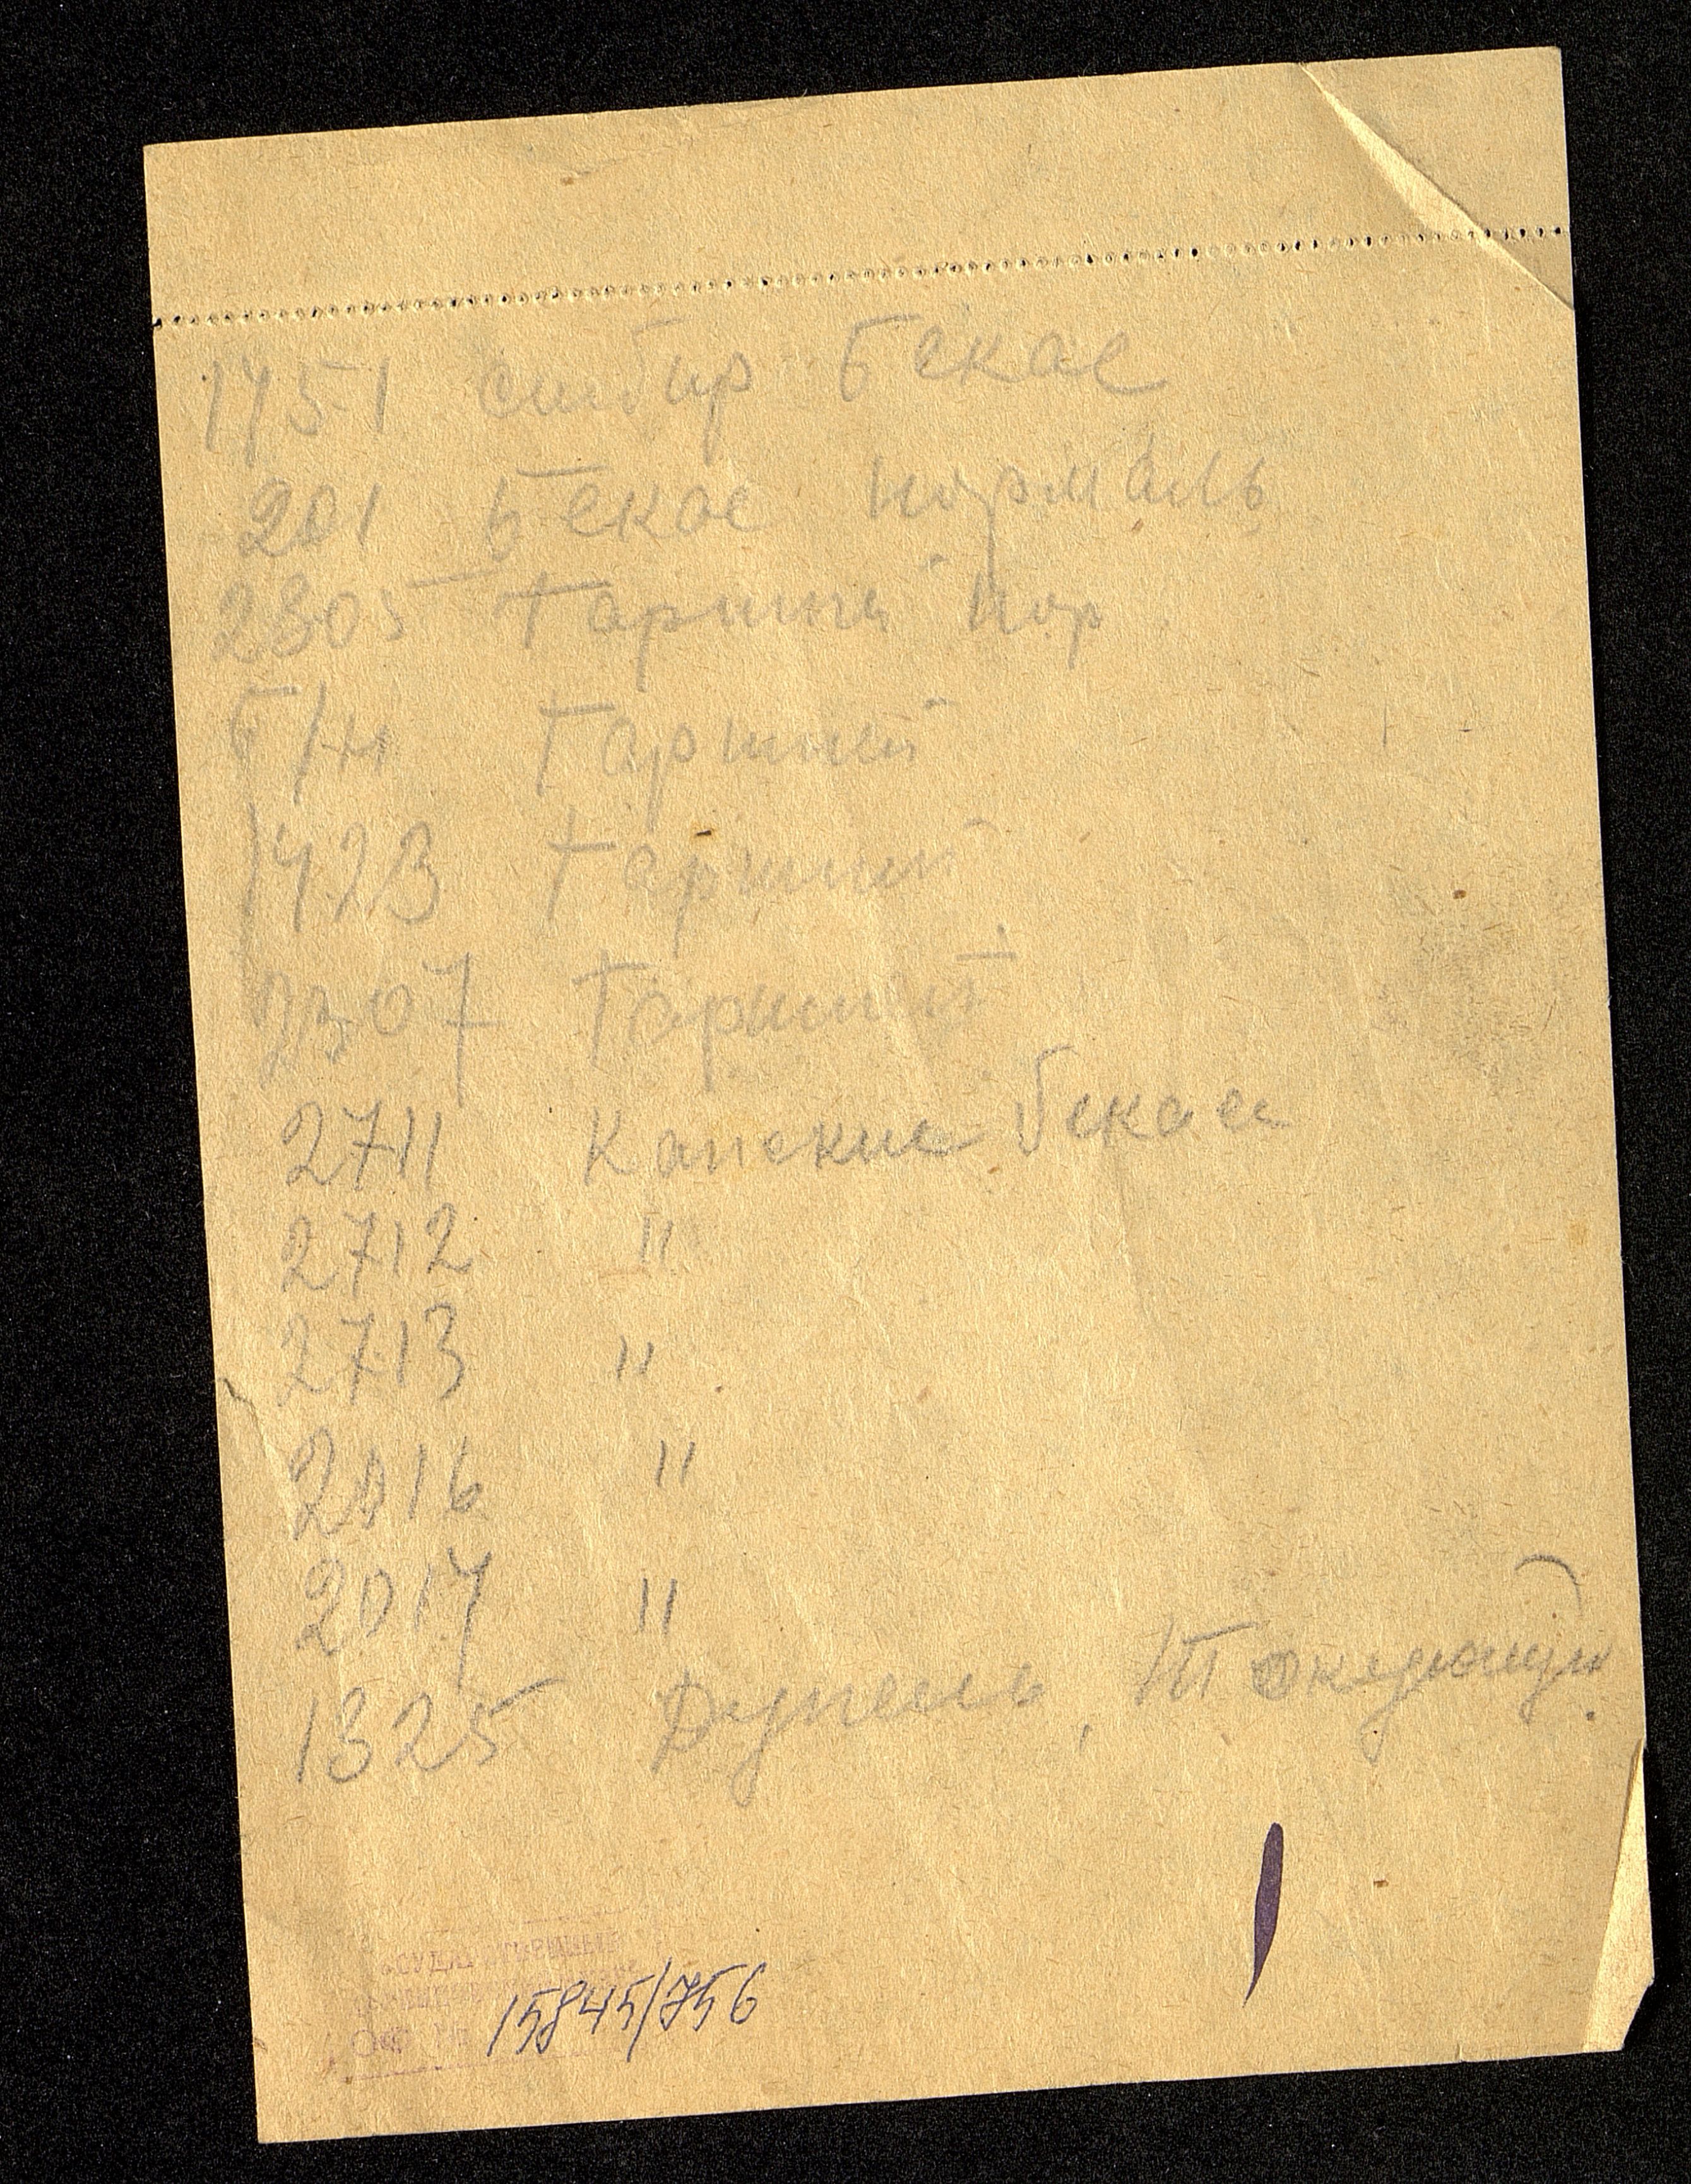 1751 сибир бекас
201 Бекас нормаль
2305 Гаршнеп нор
б/н Гаршнеп
1423 Гаршнеп
2307 Гаршнеп
2711 Капские бекасы
2712 "
2713 "
2016 "
2017 "
1325 Дупель,
15845/756